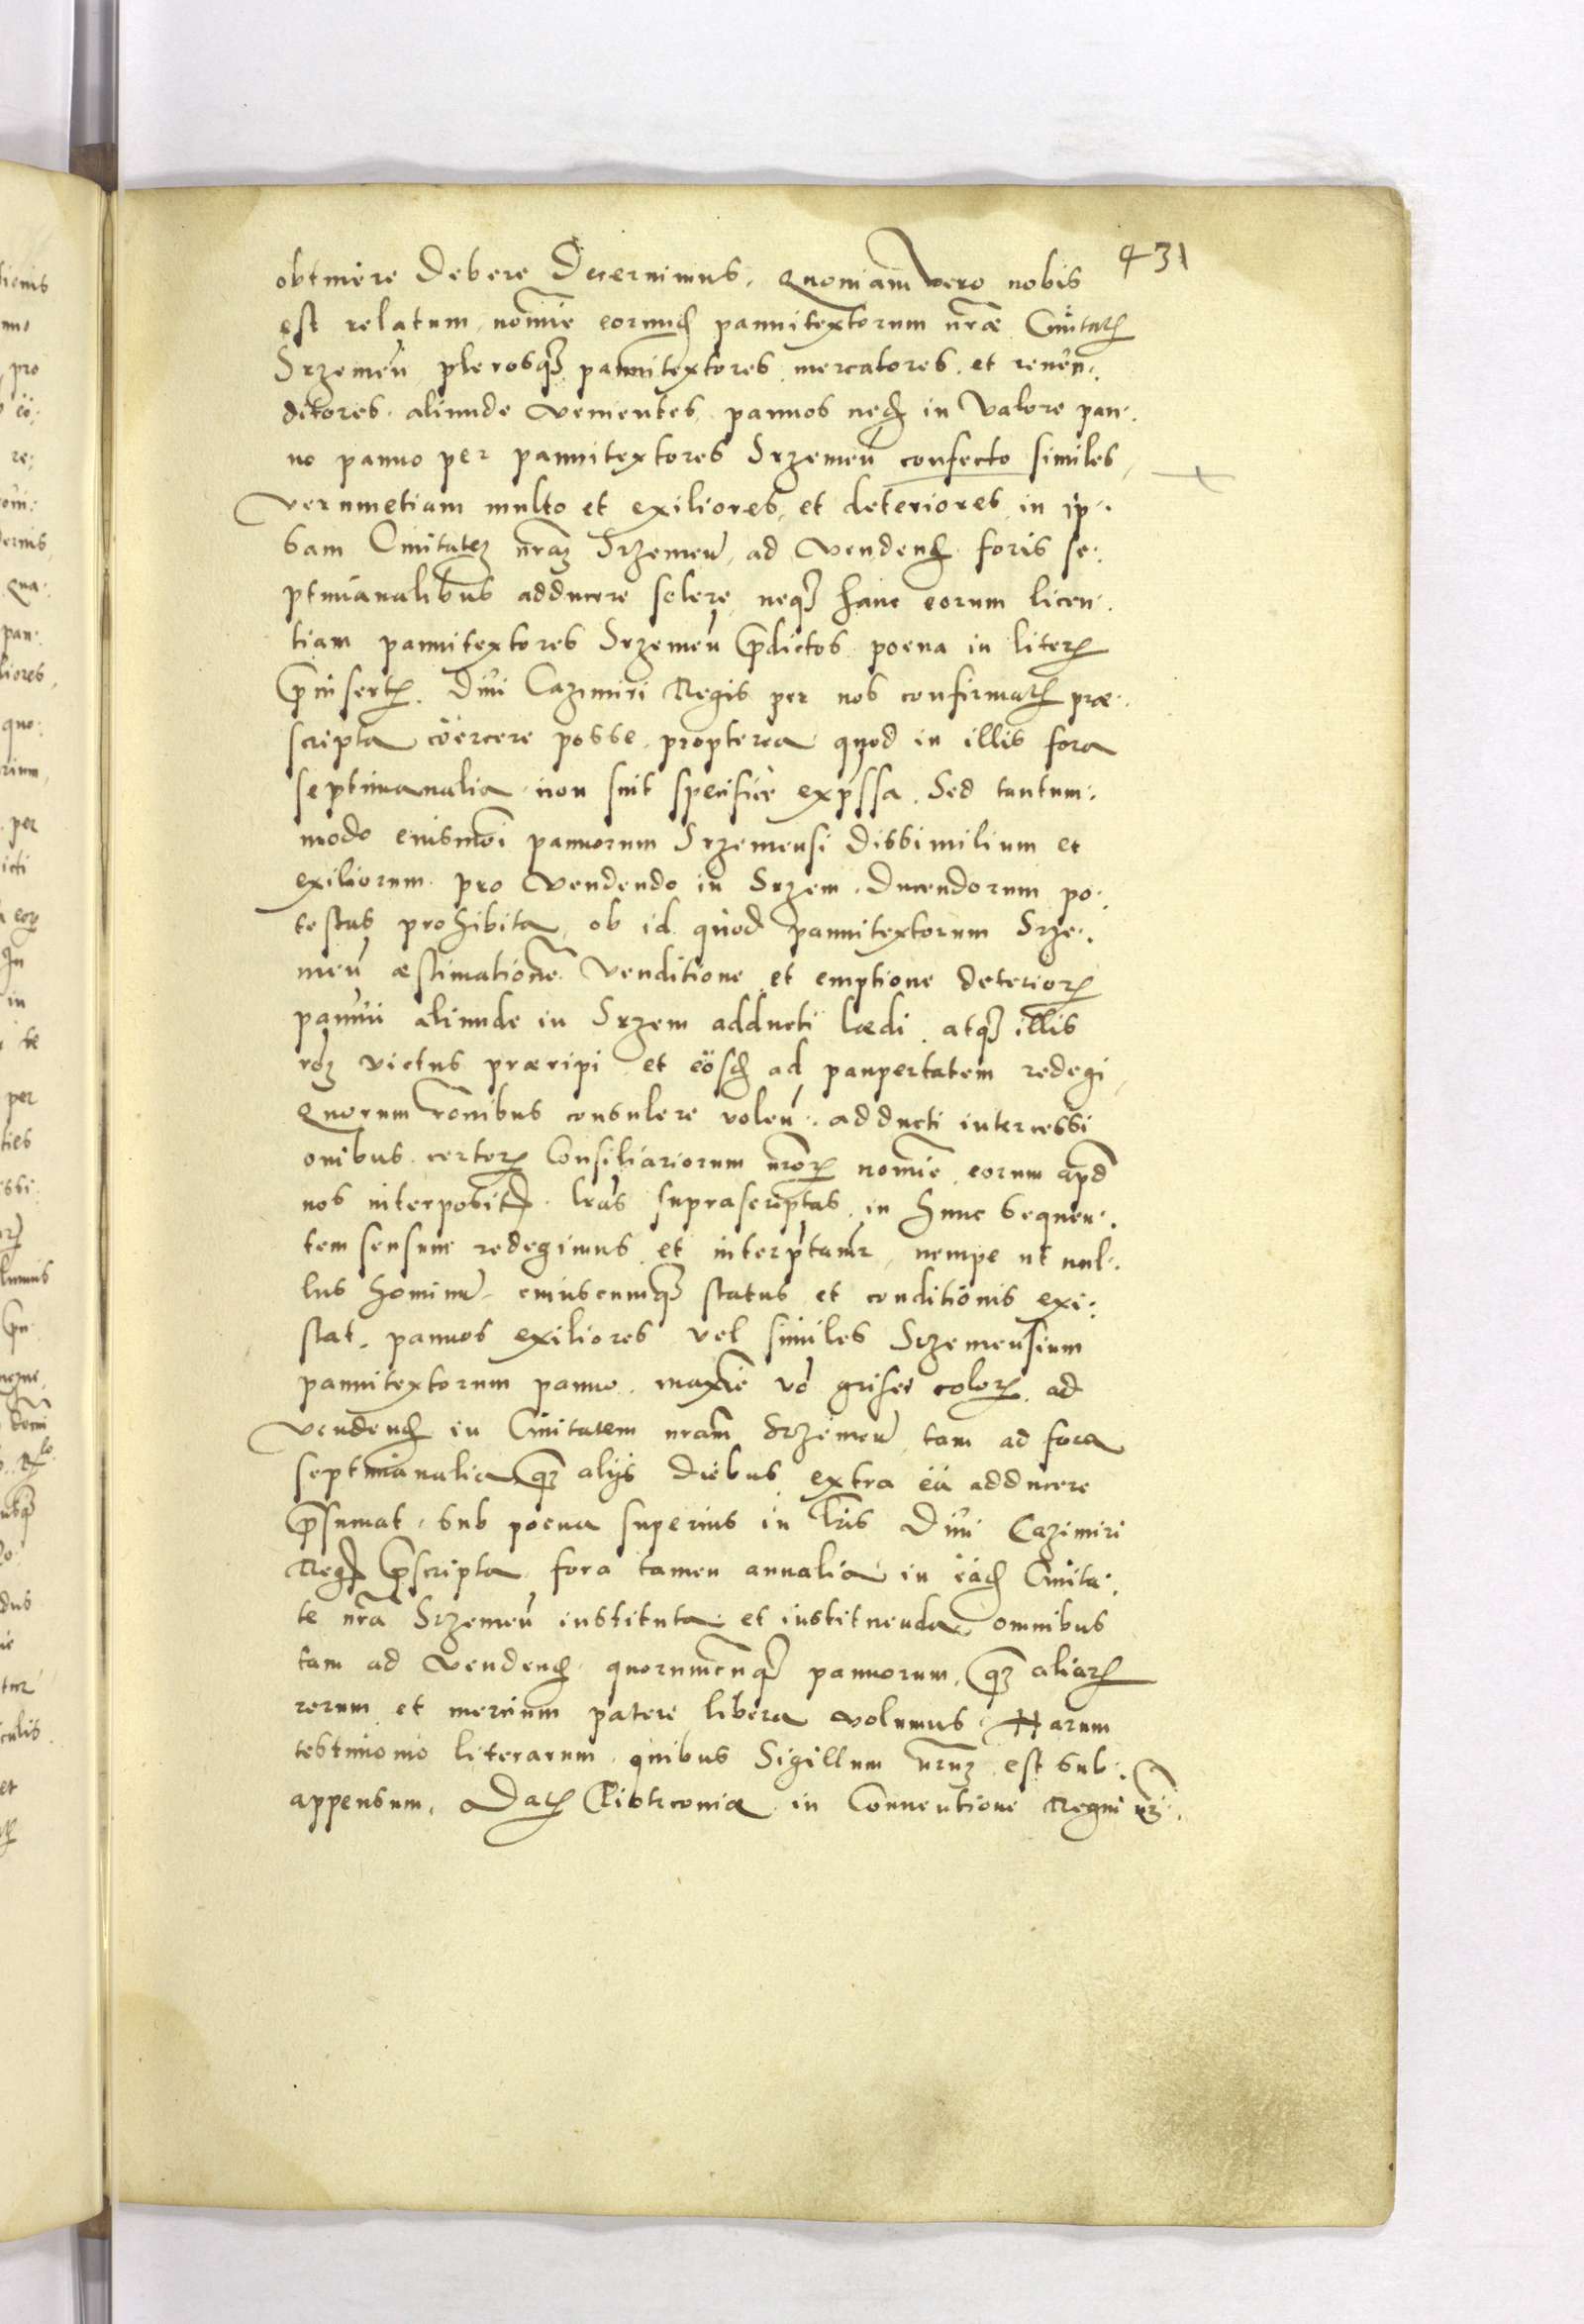 431
obtinere debere decernimus. Quoniam vero nobis
est relatum, nomine eorund pannitextorum nræ Civitat
Srzemeń plerosq pannitextores mercatores et reven:
ditores aliunde venientes pannos ned in valore pan:
no panno per pannitextores Srzemeń confecto similes
verumetiam multo et exiliores, et deteriores in ip:
sam Civitatez nraz Srzemeń ad vendend foris se:
ptimanalibus adducere solere, neq hanc eorum licen:
tiam pannitextores Srzemeń pdictos poena in liter
pinsert. Divi Cazimiri Regis per nos confirmat præ:
scripta coërcere posse, propterea quod in illis fora
septimanalia non sint specifice expssa. Sed tantum:
modo eiusmoi pannorum Srzemensi dissimilium et
exiliorum pro vendendo in Srzem ducendorum po:
testas prohibita, ob id quod pannitextorum Srze:
meń æstimatione venditione et emptione deterior
pannii aliunde in Srzem adducti lædi atq illis
roz victus præripi et eosd ad paupertatem redegi,
Quorum ronibus consulere volen. adducti intercessi
onibus certor Consiliariorum nror nomine eorum apd
nos interposit, lras suprascriptas in hunc sequen:
tem sensum redegimus et interptamr, nempe ut nul:
lus hominu cuiuscumq status et conditionis exi:
stat, pannos exiliores vel similes Srzemensium
pannitextorum panno, maxie vo grisei color ad
vendend in Civitatem nram Srzemeń tam ad fora
septimanalia qz alijs diebus extra ea adducere
psumat, sub poena superius in lris Divi Cazimiri
Reg pscripta, fora tamen annalia in ead Civita:
te nra Srzemeń instituta et instituenda omnibus
tam ad vendend quorumcunq pannorum, qz aliar
rerum et mercium patere libera volumus. Harum
testimonio literarum quibus Sigillum nruz est sub:
appensum. Dat Piotrconiæ in Conventione Regni nri.